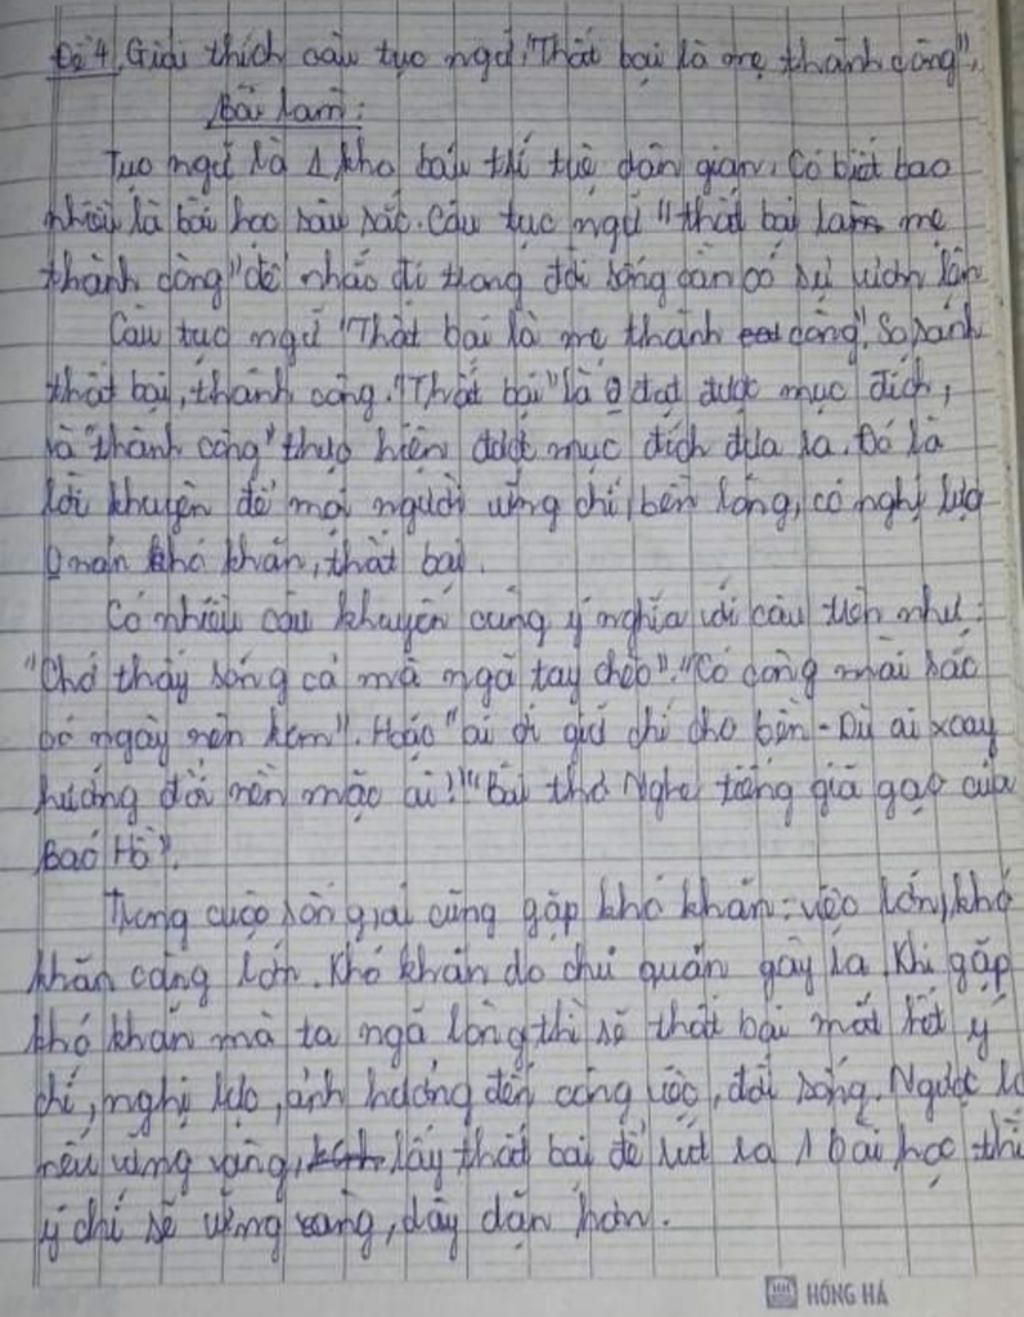 Đề 4. Giải thích câu tục ngữ "Thất bại là mẹ thành công".
Bài làm:
Tục ngữ là 1 kho báu trí tuệ dân gian. Có biết bao
nhiêu là bài học sâu sắc. Câu tục ngữ "thất bại là mẹ
thành công" để nhắc đi trong đời sống cần có sự vươn lên
Câu tục ngữ "Thất bại là mẹ thành công". So sánh
thất bại, thành công. "Thất bại" là đạt được mục đích,
và "thành công" thực hiện được mục đích đưa ra. Đó là
lời khuyên để mọi người vững chí, bền lòng, có nghị lực
khó khăn, thất bại.
Có nhiều câu khuyên cùng ý nghĩa với câu trên như:
"Chớ thấy sóng cả mà ngã tay chèo". "Có công mài sắc
có ngày nên kem". Hoặc "ai ơi giữ chí cho bền - Dù ai xoay
hướng đổi nền mặc ai!" "Bài thơ Nghe tiếng giã gạo của
Bác Hồ".
Trong cuộc sống ai cũng gặp khó khăn: việc lớn, khó
khăn càng lớn. Khó khăn do chủ quan gây ra. Khi gặp
khó khăn mà ta ngã lòng thì sẽ thất bại mất hết ý
chí, nghị lực, ảnh hưởng đến công việc, đời sống. Ngược
nếu vững vàng, lấy thất bại để rút ra 1 bài học thì
ý chí sẽ vững vàng, dày dặn hơn.
HỒNG HÀ